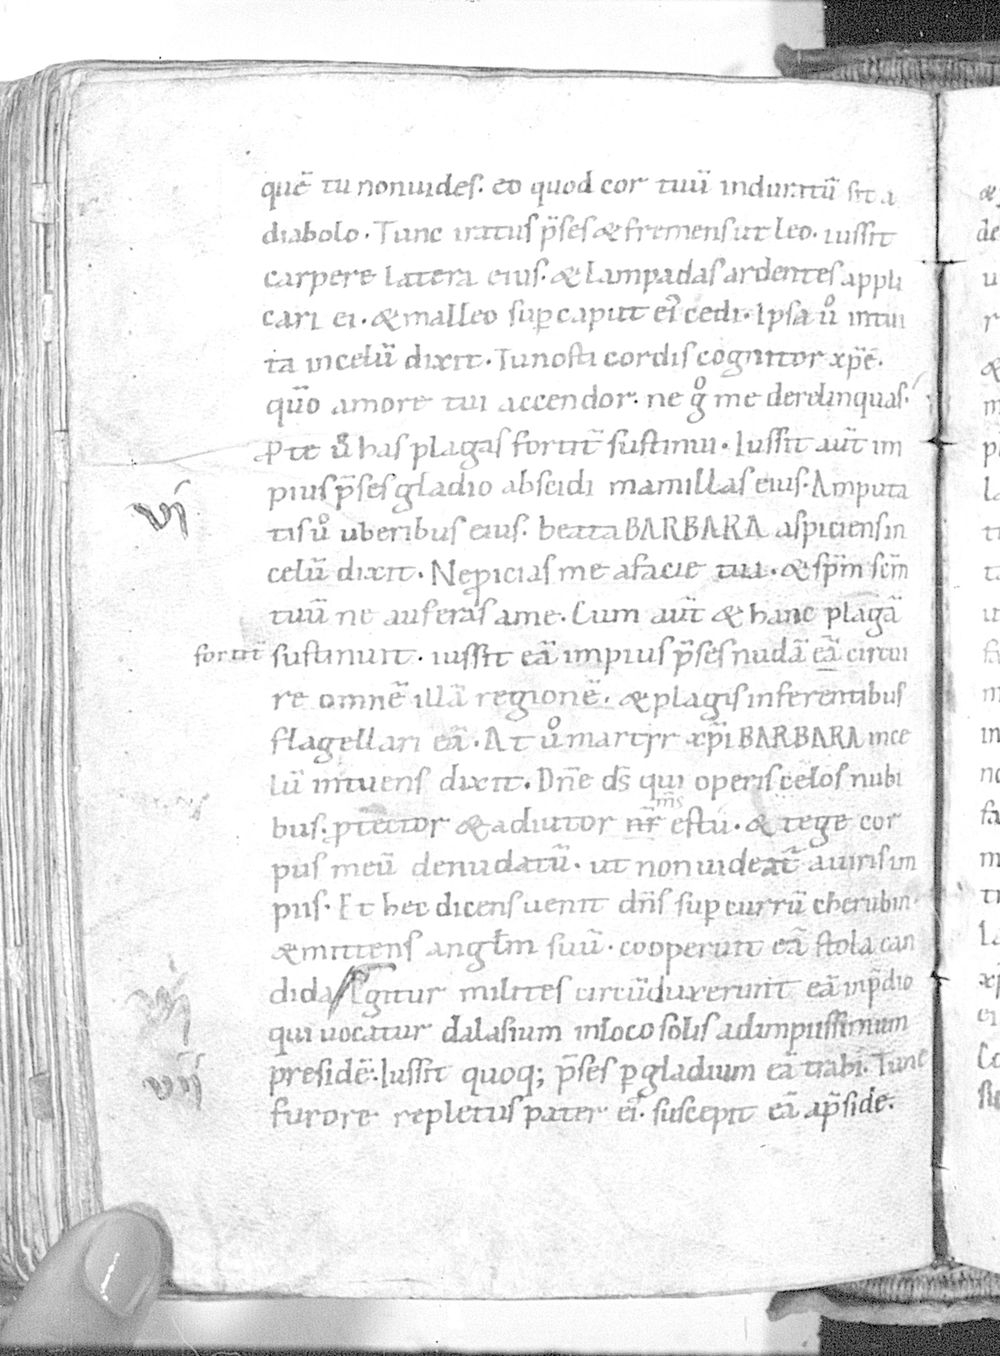 quē tu non uides. eo quod cor tuū induratū sit a
diabolo. Tunc iratus p̄ses & fremens ut leo. iussit
carpere latera eius. & lampadas ardentes appli
cari ei. & malleo sup caput ei᷒ cedi. Ipsa uº intui
ta in celū dixit. Tu nosti cordis cognitor xp̄e.
qūo amore tui accendor. ne gº me derelinquas.
P te uº has plagas fortit̄ sustinui. Iussit aut̄ im
pius p̄ses gladio abscidi mamillas eius. Amputa
tis uº uberibus eius. beata BARBARA aspiciens in
celū dixit. Ne ꝓicias me a facie tua. & sp̄m sc̄m
tuū ne auferas a me. Cum aut̄ & hanc plagā
vi
fortit̄ sustinuit. iussit eā impius p̄ses nudā eā circui
re omnē illā regionē. & plagis inferentibus
flagellari eā. At uº martyr xp̄i BARBARA in ce
lū intuens dixit. Dn̄e ds̄ qui operis celos nubi
bus. ꝓtector & adiutor nr̄ m̄s es tu. & tege cor
pus meū denudatū. ut non uideat̄ a uiris im
piis. Et hec dicens uenit dn̄s sup currū cherubin.
& mittens angl̄m suū. cooperuit eā stola can
dida. Igitur milites circūduxerunt eā in p̄dio
qui uocatur dalasium in loco solis ad impiissimum
vii
presidē. Iussit quoq; p̄ses p gladium eā trahi. Tunc
furore repletus pater ei᷒. suscepit eā a p̄side.